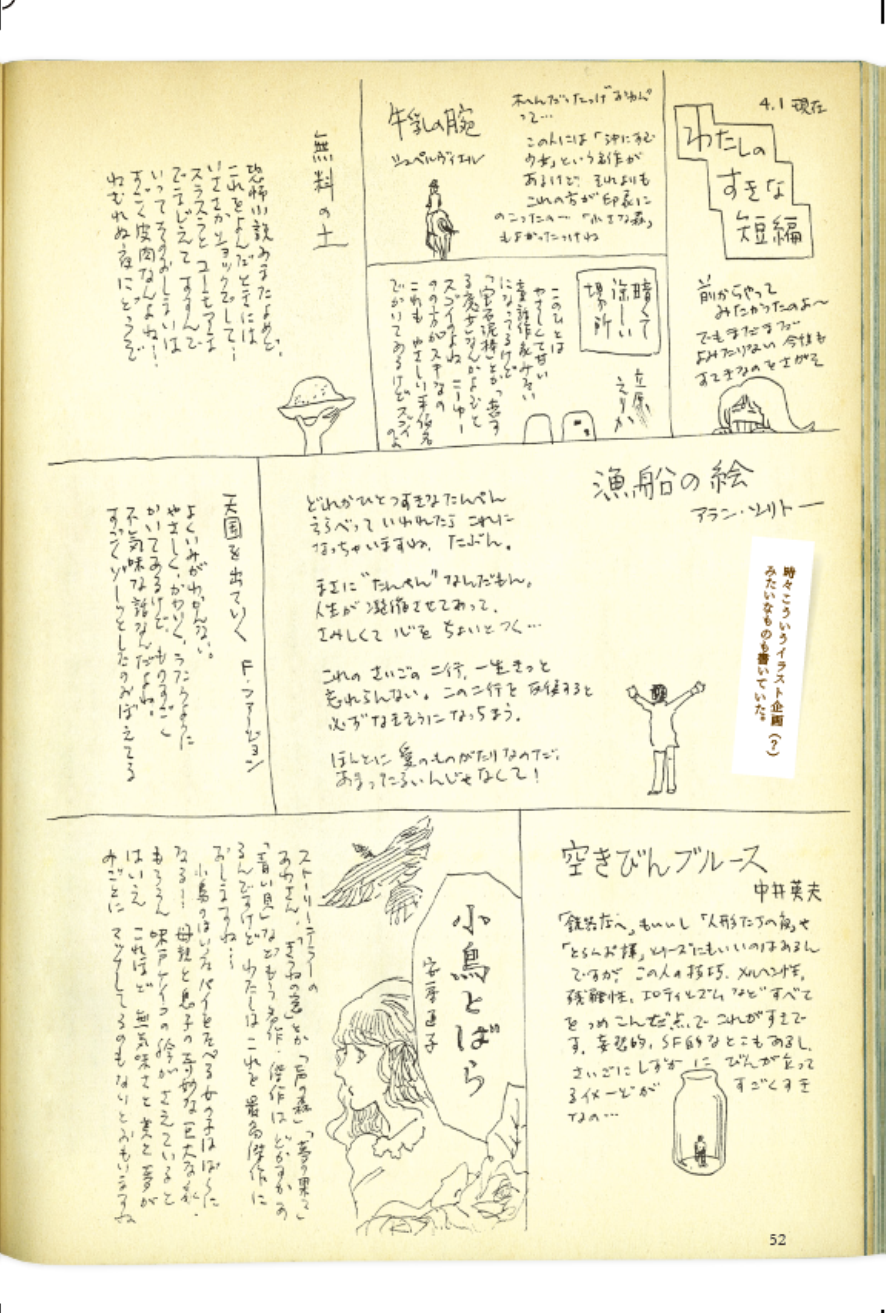 4.1 現在
わたしの
すきな
短編
前からやって
みたかったのよ〜
でもまだまだ
よみたりない 今後も
すてきなのをさがそ
牛乳の腕
シュペルヴィエル
って…
この人には「沖に住む
少女」という名作が
あるけど、それよりも
これの方が印象に
のこったの…「小さな森」
もよかったっけね
暗くて
涼しい
場所
立原
えりか
このひとは
やさしくて甘い
童話作家みたい
になってるけど
「宝石泥棒」とか「恋す
る魔女」なんかよむと
スゴイのよね こーゆー
のの方がスキなの
これも やさしい手仮名
でかいてあるけどスゴイ
のよ
無料の土
恐怖小説のまたよめど、
これをよんだときには
いささかショックでして…
スラスラとユーモアま
でまじえて すすんで
いってそのおしまいは
すごく皮肉なんよね…!
ねむれぬ夜にどうぞ
漁船の絵
アラン・シリトー
どれかひとつすきなたんぺん
えらべって いわれたら これに
なっちゃいますね、たぶん。
まさに“たんぺん”なんだもん。
人生が 凝縮させてあって、
さみしくて 心を ちょいとつく…
これの さいごの 二行、一生きっと
忘れらんない。この二行を 反復すると
必ずなきそうになっちまう。
ほんとに 愛のものがたりなのだ、
あまったるいんじゃなくて!
時々こういうイラスト企画(?)
みたいなものも書いていた。
天国を出ていく F・ファージョン
よくいみがわかんない。
やさしく、かわいく、うたうように
かいてあるけど、ものすごく
不気味な話なんだよね。
すっごくゾーッとしたのおぼえてる
空きびんブルース
中井英夫
「銃器店へ」もいいし「人形たちの夜」や
「とらんぷ譚」シリーズにもいいのはあるん
ですが この人の技巧、メルヘン性、
残酷性、エロティシズム などすべて
を つめこんだ点で これがすきで
す。妄想的、SF的なとこもあるし、
さいごにしずかに びんが立って
るイメージが すごくすき
なの…
小鳥とばら
安房直子
ストーリーテラーの
あわさん、「きつねの窓」とか「声の森」「夢の果て」
「青い貝」など もう 名作・傑作は どかすかあ
るんですけど わたしは これを 最高傑作に
おしますね…
小鳥のはいったパイをたべる女の子はばらに
なる! 母親と息子の奇妙な 巨大な家、
もちろん 味戸ケイコの絵が さえていると
はいえ これほど 無気味さと 美と夢が
みごとに マッチしてるのもないとおもいますね
52